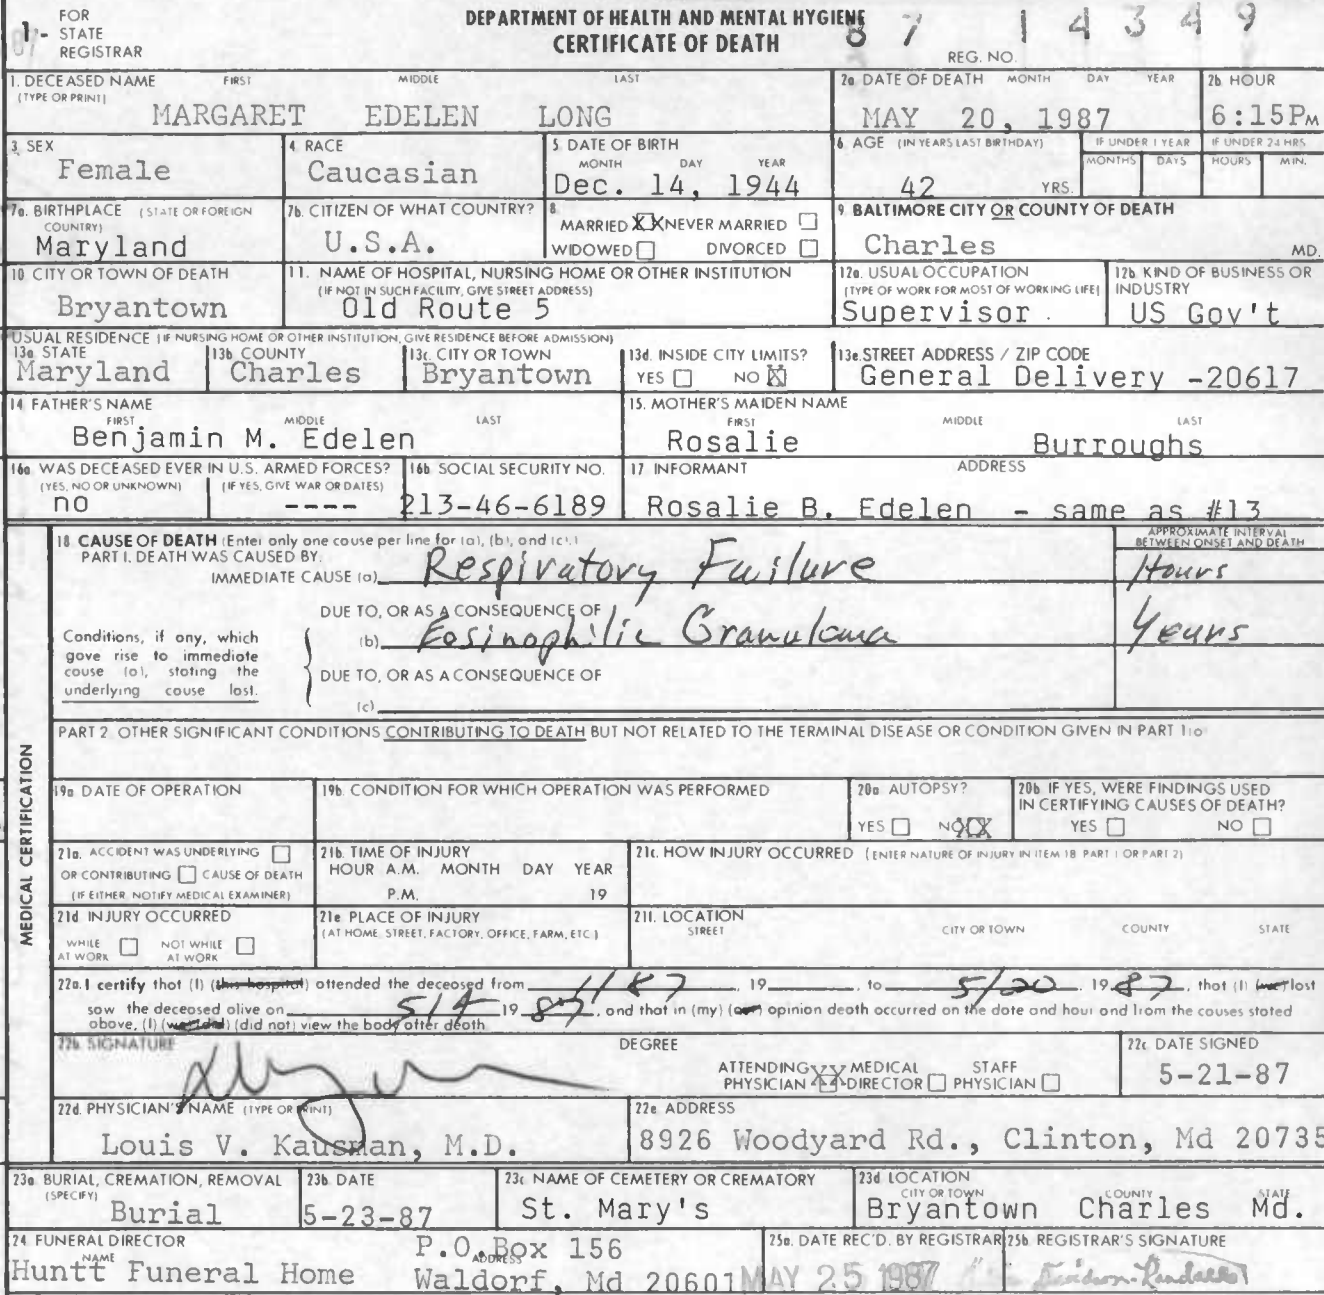 1- FOR STATE REGISTRAR
DEPARTMENT OF HEALTH AND MENTAL HYGIENE
CERTIFICATE OF DEATH
REG. NO. 87 14349
1. DECEASED NAME (TYPE OR PRINT) FIRST MIDDLE LAST
MARGARET EDELEN LONG
2a DATE OF DEATH MONTH DAY YEAR
MAY 20, 1987
2b HOUR
6:15PM
3 SEX
Female
4 RACE
Caucasian
5 DATE OF BIRTH MONTH DAY YEAR
Dec. 14, 1944
6 AGE (IN YEARS LAST BIRTHDAY)
42 YRS.
IF UNDER 1 YEAR MONTHS DAYS
IF UNDER 24 HRS HOURS MIN.
7a. BIRTHPLACE (STATE OR FOREIGN COUNTRY)
Maryland
7b. CITIZEN OF WHAT COUNTRY?
U.S.A.
8 MARRIED XX NEVER MARRIED
WIDOWED DIVORCED
9 BALTIMORE CITY OR COUNTY OF DEATH
Charles MD.
10 CITY OR TOWN OF DEATH
Bryantown
11. NAME OF HOSPITAL, NURSING HOME OR OTHER INSTITUTION
(IF NOT IN SUCH FACILITY, GIVE STREET ADDRESS)
Old Route 5
12a. USUAL OCCUPATION
(TYPE OF WORK FOR MOST OF WORKING LIFE)
Supervisor
12b. KIND OF BUSINESS OR INDUSTRY
US Gov't
USUAL RESIDENCE (IF NURSING HOME OR OTHER INSTITUTION, GIVE RESIDENCE BEFORE ADMISSION)
13a STATE
Maryland
13b COUNTY
Charles
13c. CITY OR TOWN
Bryantown
13d. INSIDE CITY LIMITS?
YES NO X
13e. STREET ADDRESS / ZIP CODE
General Delivery -20617
14 FATHER'S NAME FIRST MIDDLE LAST
Benjamin M. Edelen
15. MOTHER'S MAIDEN NAME FIRST MIDDLE LAST
Rosalie Burroughs
16a WAS DECEASED EVER IN U.S. ARMED FORCES?
(YES, NO OR UNKNOWN) (IF YES, GIVE WAR OR DATES)
no ----
16b SOCIAL SECURITY NO.
213-46-6189
17 INFORMANT ADDRESS
Rosalie B. Edelen - same as #13
MEDICAL CERTIFICATION
18 CAUSE OF DEATH (Enter only one cause per line for (a), (b), and (c).)
APPROXIMATE INTERVAL BETWEEN ONSET AND DEATH
PART I. DEATH WAS CAUSED BY:
IMMEDIATE CAUSE (a) Respiratory Failure Hours
DUE TO, OR AS A CONSEQUENCE OF
(b) Eosinophilic Granuloma Years
Conditions, if any, which gave rise to immediate cause (a), stating the underlying cause last.
DUE TO, OR AS A CONSEQUENCE OF
(c)
PART 2 OTHER SIGNIFICANT CONDITIONS CONTRIBUTING TO DEATH BUT NOT RELATED TO THE TERMINAL DISEASE OR CONDITION GIVEN IN PART 1(a)
19a DATE OF OPERATION
19b. CONDITION FOR WHICH OPERATION WAS PERFORMED
20a AUTOPSY?
YES NO XX
20b IF YES, WERE FINDINGS USED IN CERTIFYING CAUSES OF DEATH?
YES NO
21a. ACCIDENT WAS UNDERLYING
OR CONTRIBUTING CAUSE OF DEATH
(IF EITHER, NOTIFY MEDICAL EXAMINER)
21b. TIME OF INJURY
HOUR A.M. MONTH DAY YEAR
P.M. 19
21c. HOW INJURY OCCURRED (ENTER NATURE OF INJURY IN ITEM 18 PART 1 OR PART 2)
21d INJURY OCCURRED
WHILE AT WORK NOT WHILE AT WORK
21e PLACE OF INJURY
(AT HOME, STREET, FACTORY, OFFICE, FARM, ETC.)
21f. LOCATION STREET CITY OR TOWN COUNTY STATE
22a. I certify that (I) (this hospital) attended the deceased from 1/87, 19 , to 5/20, 1987, that (I) (we) last
saw the deceased alive on 5/4 1987, and that in (my) (our) opinion death occurred on the date and hour and from the causes stated
above, (I) (we) (did) (did not) view the body after death
22b. SIGNATURE DEGREE
ATTENDING PHYSICIAN XX MEDICAL DIRECTOR STAFF PHYSICIAN
22c DATE SIGNED
5-21-87
22d. PHYSICIAN'S NAME (TYPE OR PRINT)
Louis V. Kausman, M.D.
22e ADDRESS
8926 Woodyard Rd., Clinton, Md 20735
23a BURIAL, CREMATION, REMOVAL (SPECIFY)
Burial
23b. DATE
5-23-87
23c NAME OF CEMETERY OR CREMATORY
St. Mary's
23d LOCATION CITY OR TOWN COUNTY STATE
Bryantown Charles Md.
24 FUNERAL DIRECTOR NAME ADDRESS
Huntt Funeral Home
P.O. Box 156
Waldorf, Md 20601
25a. DATE REC'D. BY REGISTRAR
MAY 25 1987
25b. REGISTRAR'S SIGNATURE